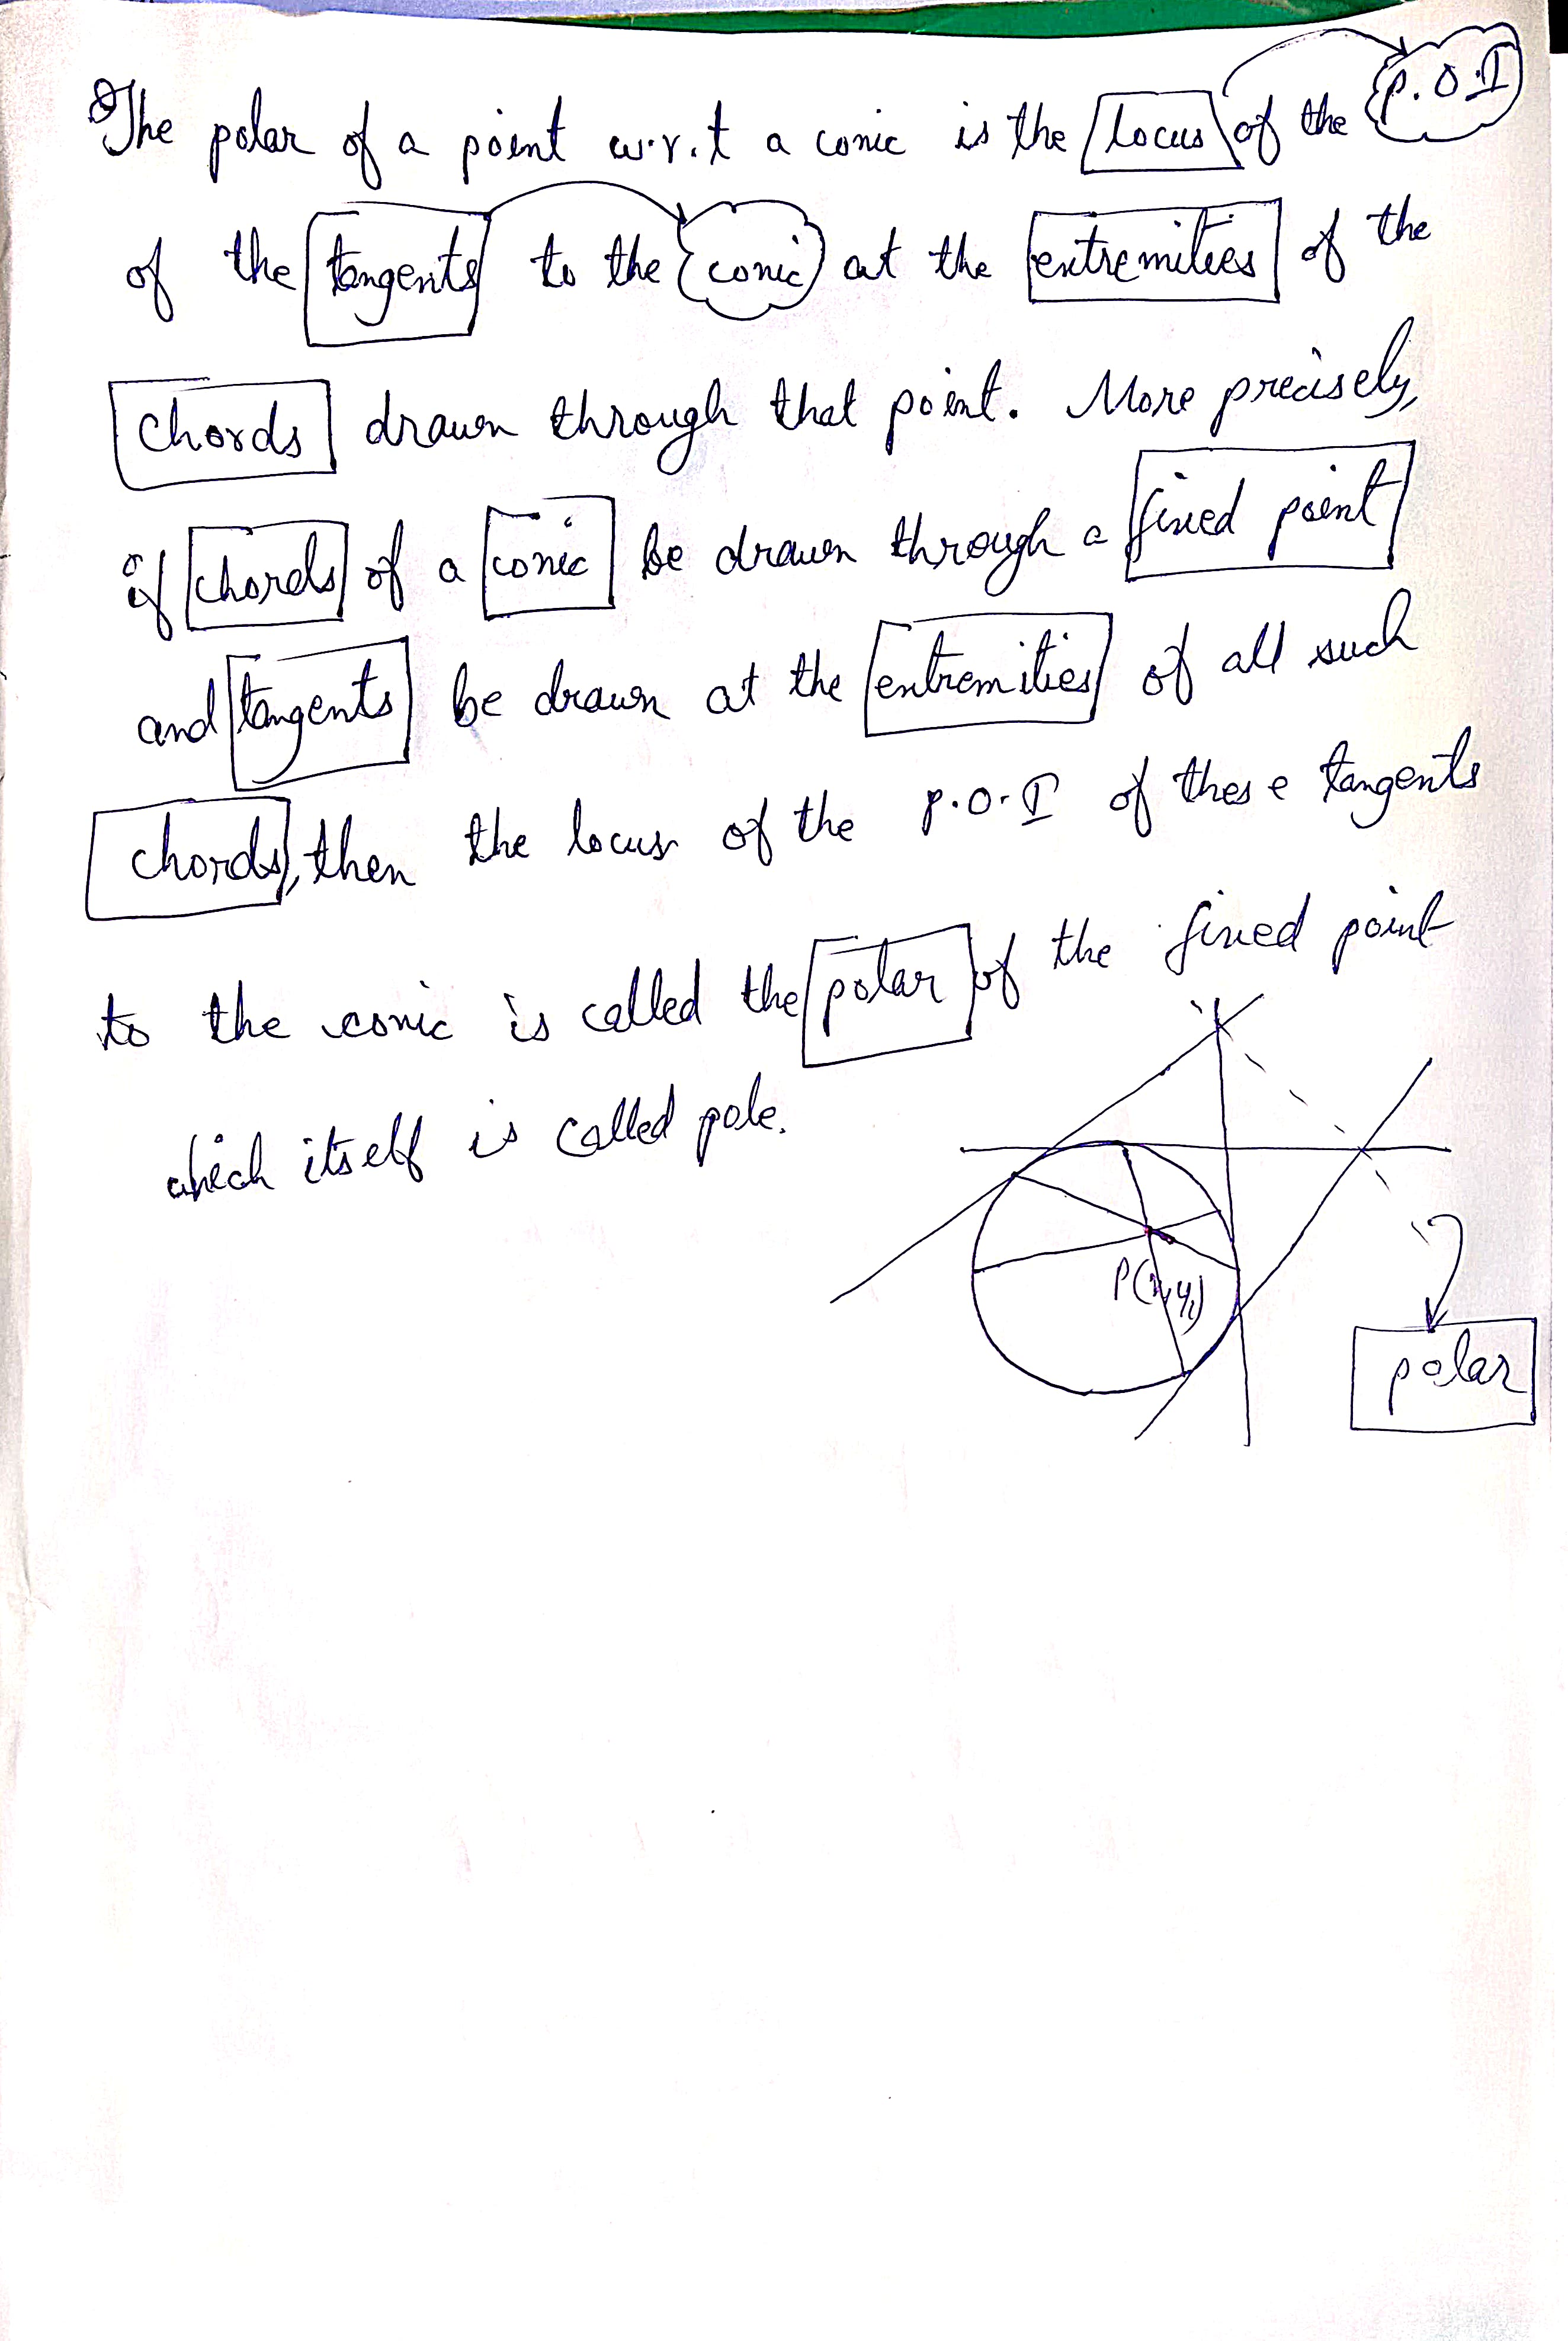 The polar of a point w.r.t a conic is the locus of the P.O.I
of the tangents to the conic at the extremities of the
chords drawn through that point. More precisely,
if chords of a conic be drawn through a fixed point
and tangents be drawn at the extremities of all such
chords, then the locus of the P.O.I of these tangents
to the conic is called the polar of the fixed point
which itself is called pole.
P(x₁, y₁)
polar